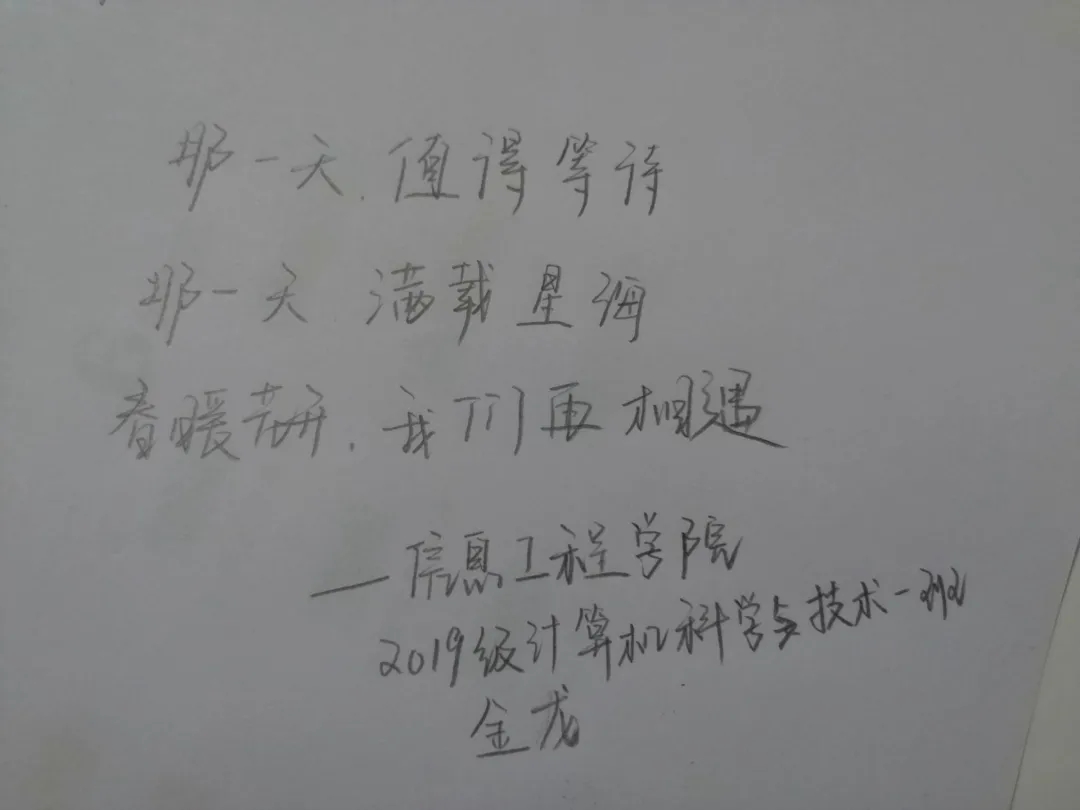 那一天.值得等待
那一天 满载星海
春暖花开.我们再相遇
—信息工程学院
2019级计算机科学与技术一班
金龙